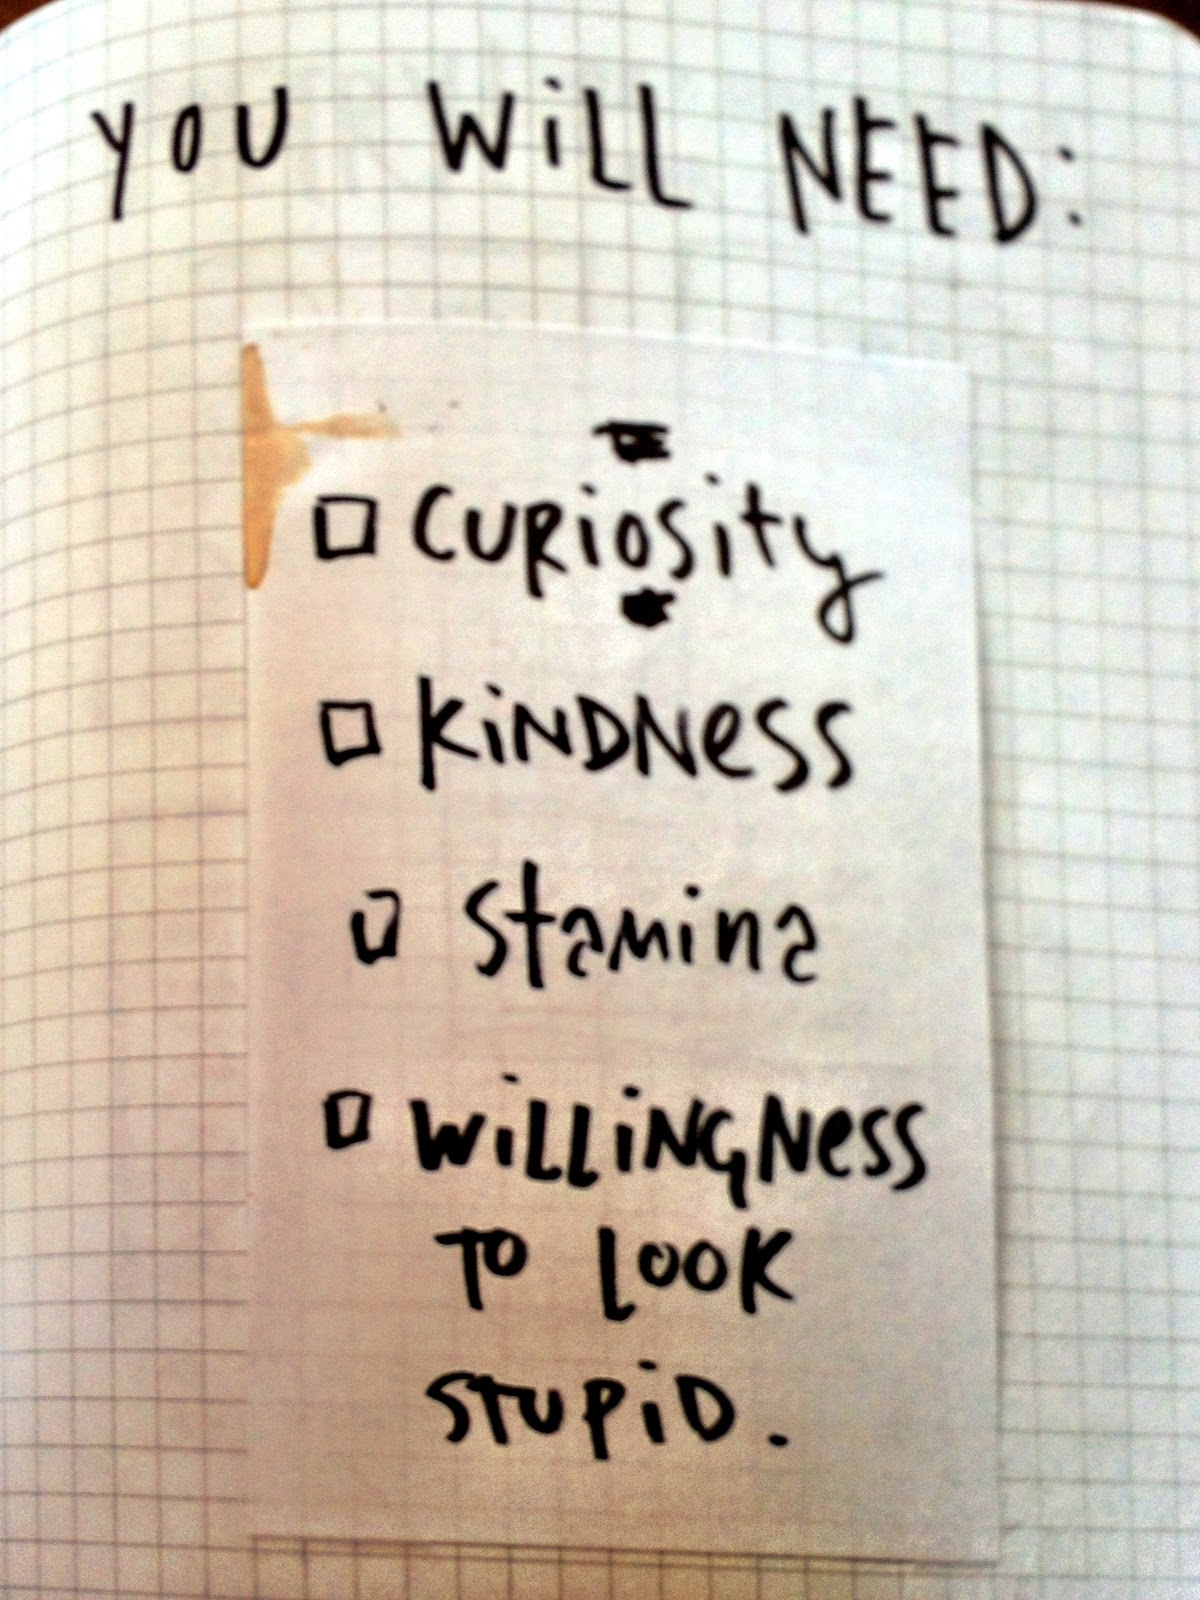 YOU WiLL NEED:
□ CURiOSity
□ KiNDNeSS
□ Stamina
□ WiLLiNGNeSS
TO LOOK
STUPiD.